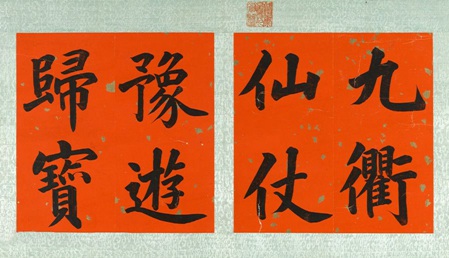 九衢
仙仗
豫遊
歸寶